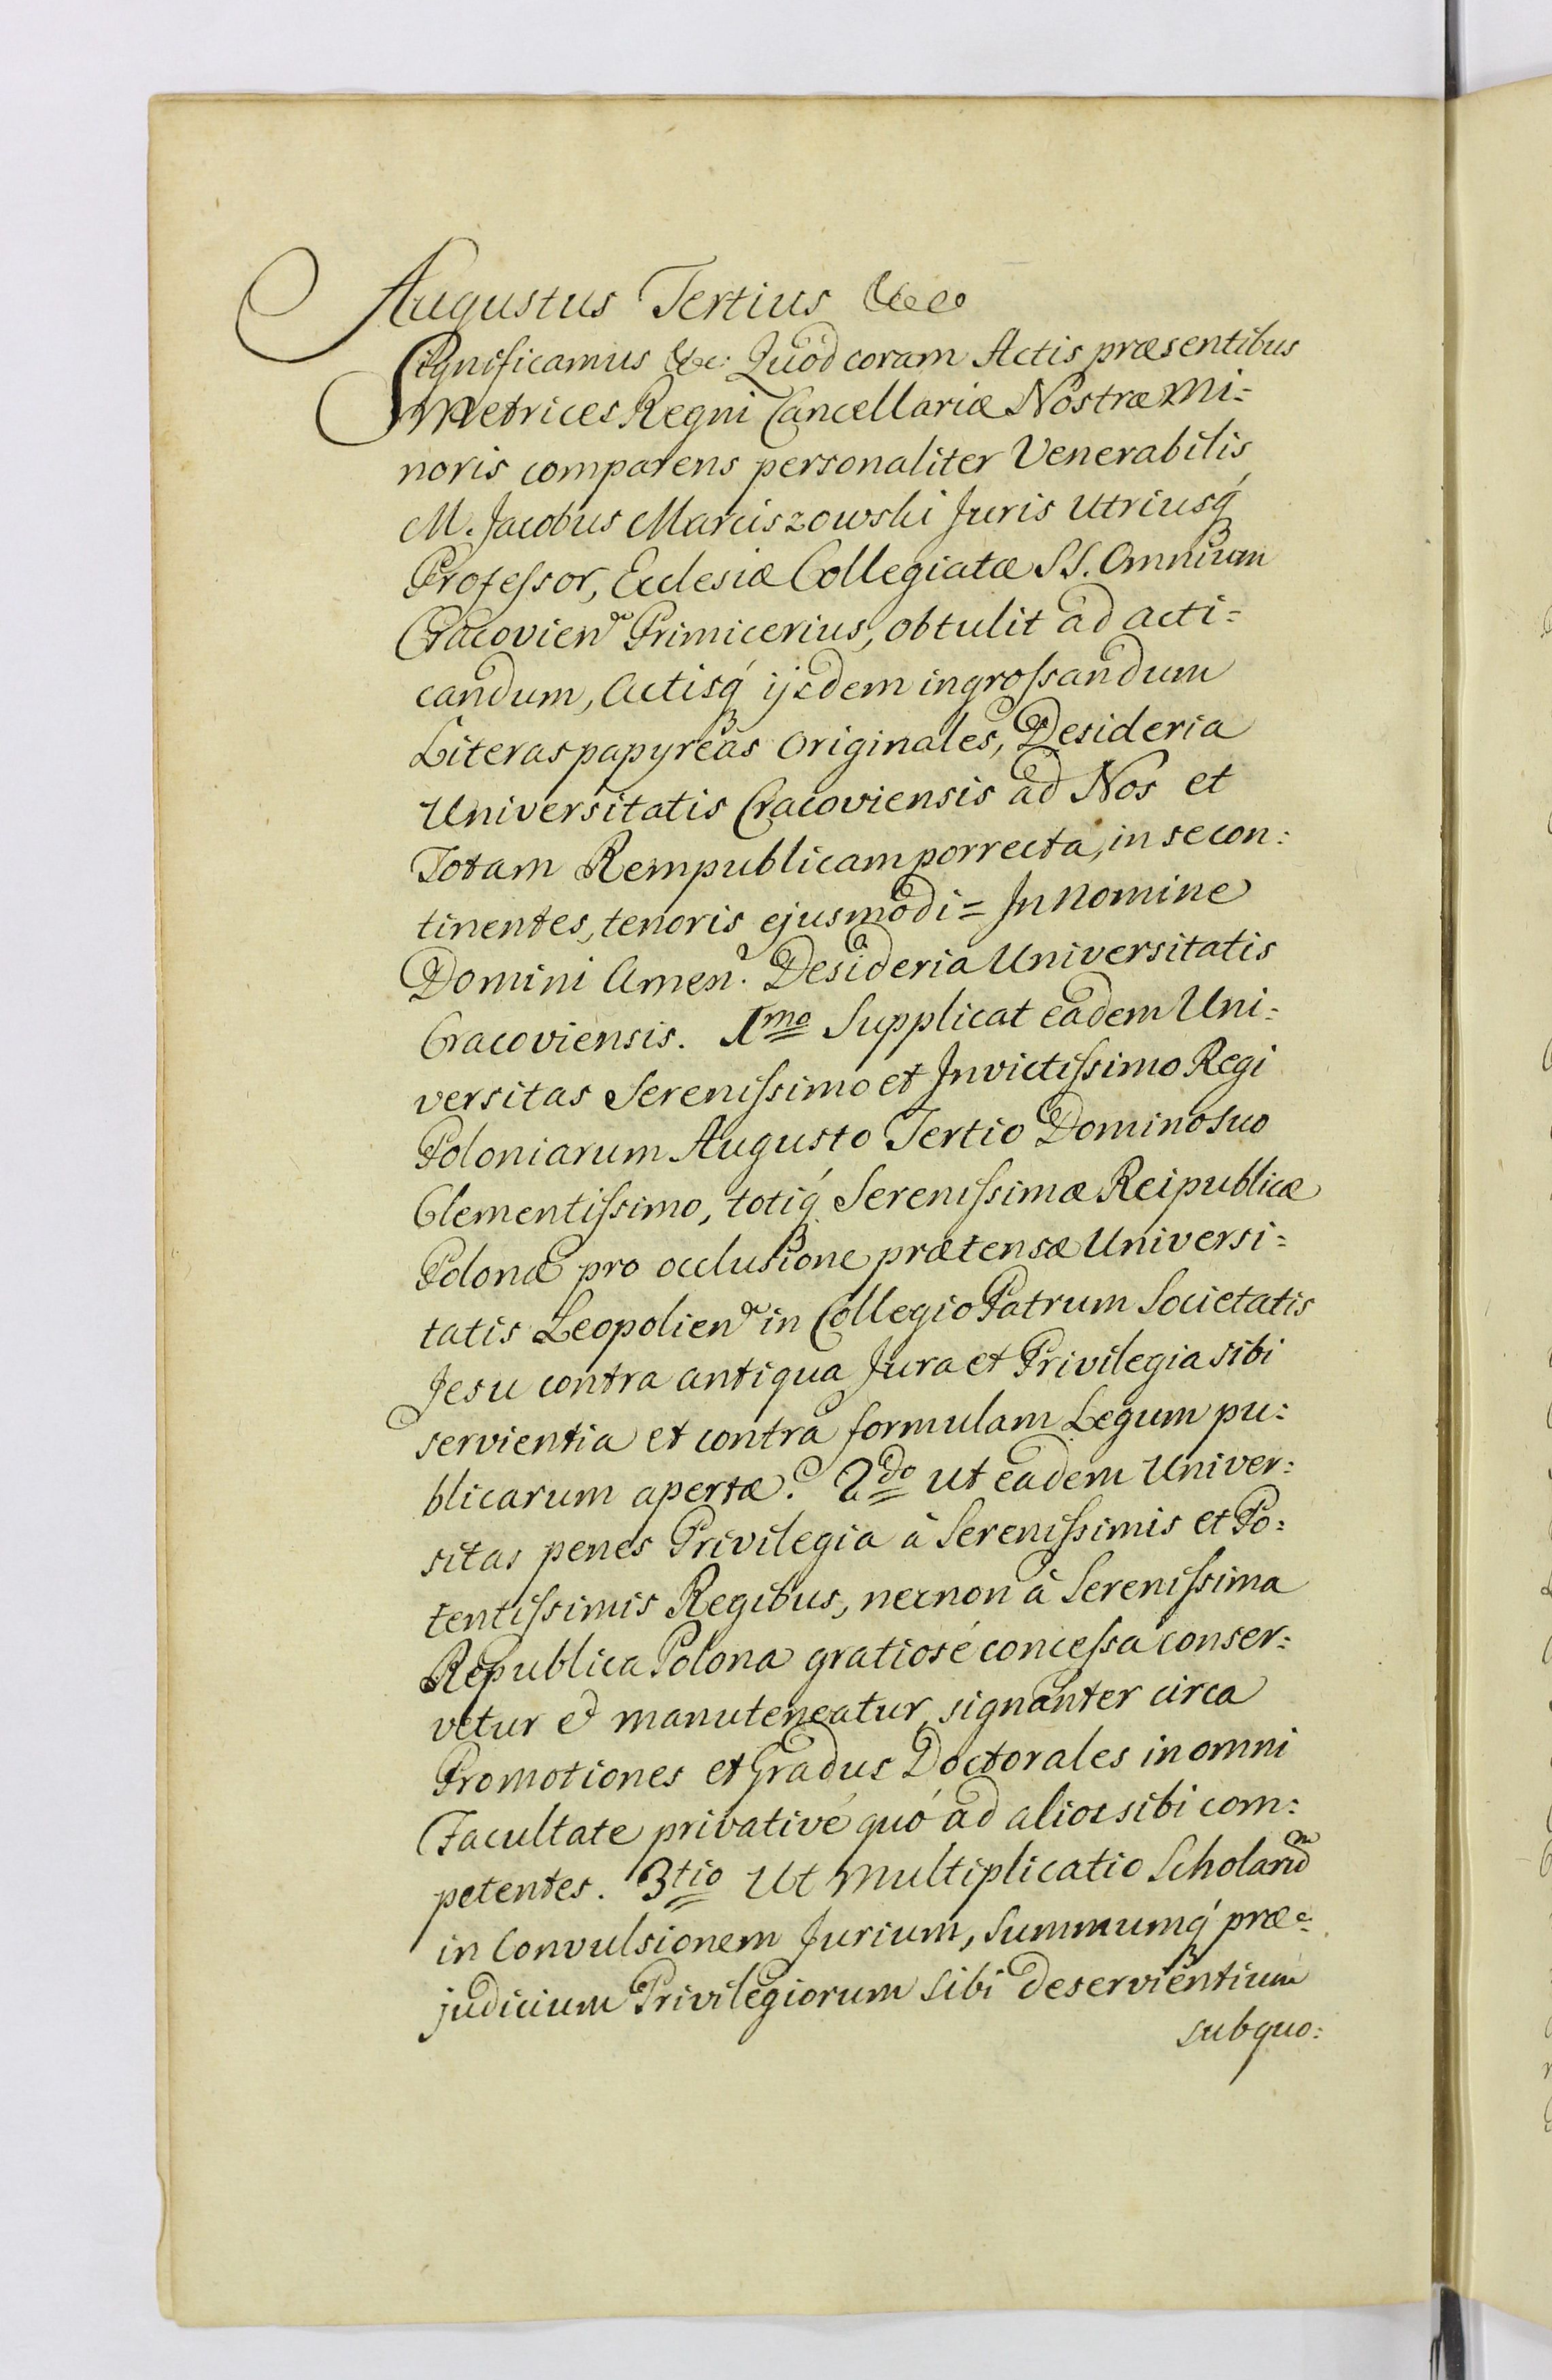 Augustus Tertius &c.
Significamus &c. Quod coram Actis præsentibus
Metrices Regni Cancellariæ Nostræ Mi=
noris comparens personaliter Venerabilis
M. Jacobus Marciszowski Juris Utriusq́
Profeſsor, Ecclesiæ Collegiatæ SS. Omnium
Cracovien̄ Primicerius, obtulit ad acti=
candum, Actisq́ ijsdem ingroſsandum
Literas papyreas Originales, Desideria
Universitatis Cracoviensis ad Nos et
Totam Rempublicam porrecta, in se con:
tinentes, tenoris ejusmodi = In Nomine
Domini Amen. Desideria Universitatis
Cracoviensis. 1mo Supplicat eadem Uni:
versitas Sereniſsimo et Invictiſsimo Regi
Poloniarum Augusto Tertio Domino suo
Clementiſsimo, totiq́ Sereniſsimæ Reipublicæ
Polonæ pro occlusione prætensæ Universi=
tatis Leopolien̄ in Collegio Patrum Societatis
Jesu contra antiqua Jura et Privilegia sibi
servientia et contra formulam Legum pu:
blicarum apertæ. 2do ut eadem Univer:
sitas penes Privilegia à Sereniſsimis et Po:
tentiſsimis Regibus, necnon à Sereniſsima
Republica Polona gratiosé conceſsa conser:
vetur et manuteneatur, signanter circa
Promotiones et Gradus Doctorales in omni
Facultate privativé quó ad alios sibi com:
petentes. 3tio Ut Multiplicatio Scholarum
in Convulsionem Jurium, Summumq́ præ=
judicium Privilegiorum sibi deservientium
subquo: